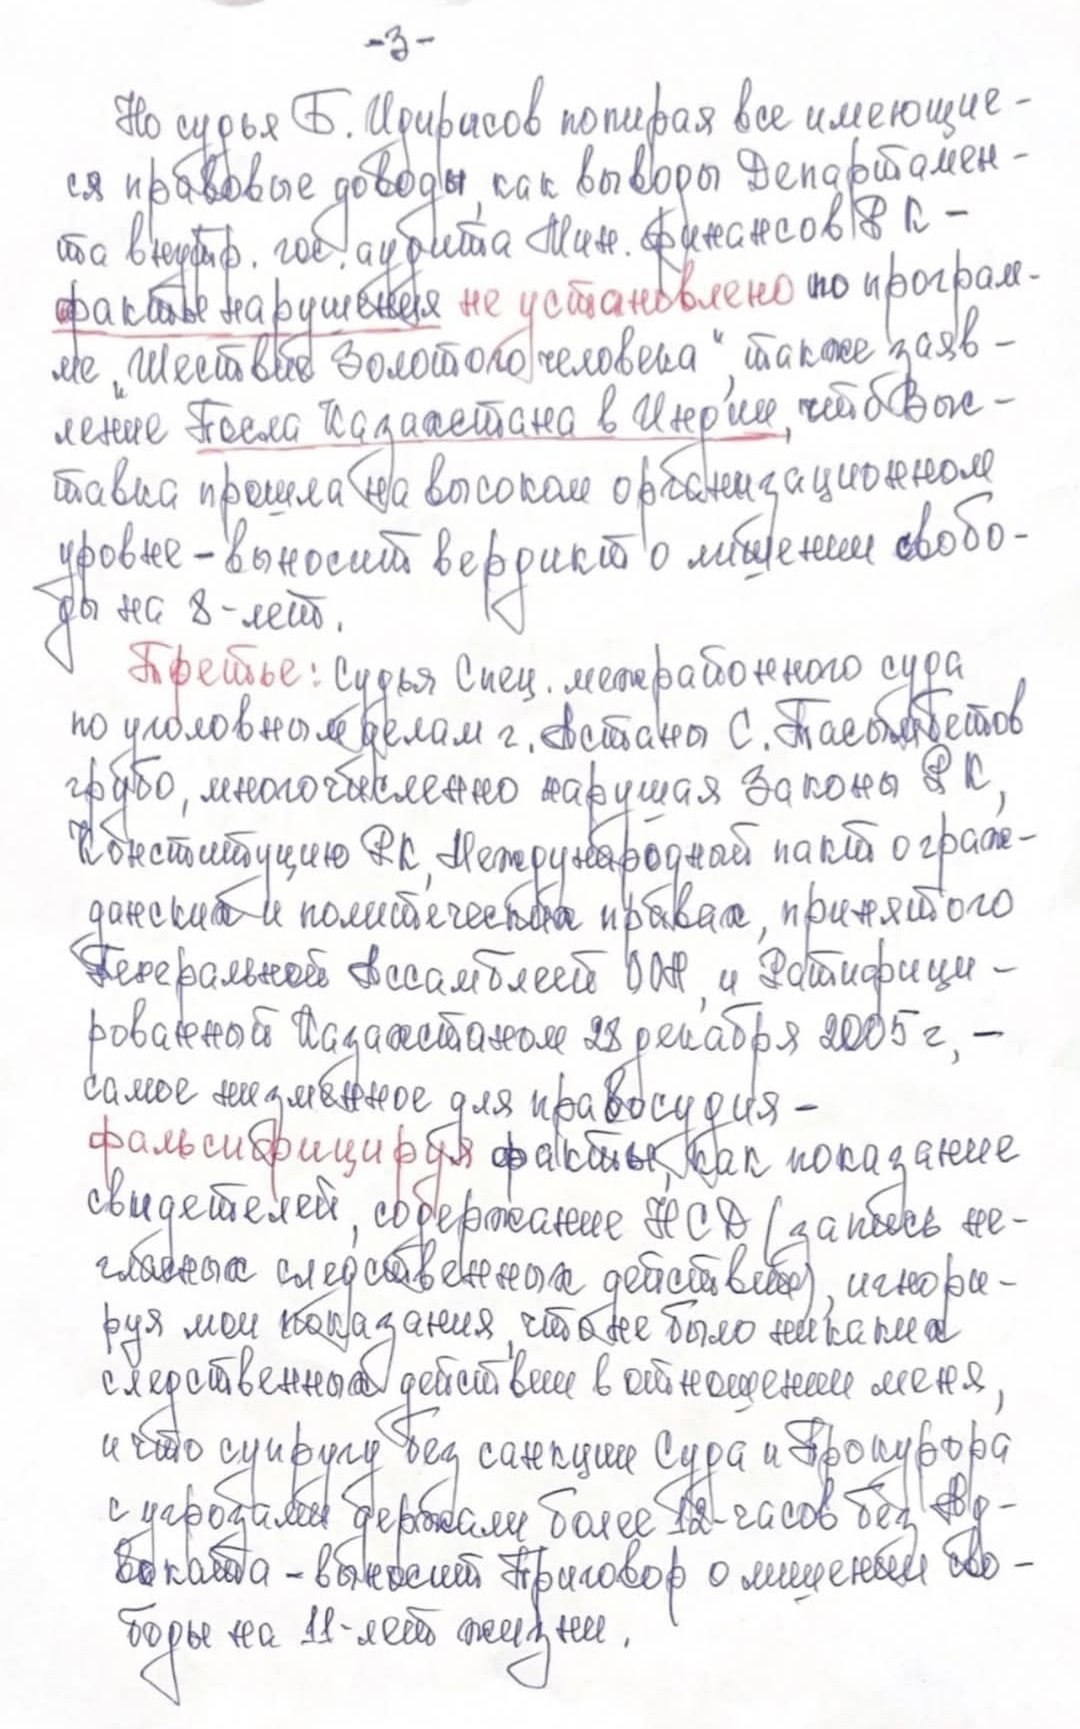 -3-
Но судья Б. Идирисов попирая все имеющие-
ся правовые доводы, как выводы Департамен-
та внутр. гос. аудита Мин. финансов РК -
факты нарушения не установлено по програм-
ме „Шествие Золотого человека", также заяв-
ление Посла Казахстана в Индии, что Выс-
тавка прошла на высоком организационном
уровне - выносит вердикт о лишении свобо-
ды на 8-лет.
Третье: Судья Спец. межрайонного суда
по уголовным делам г. Астаны С. Тасымбетов
грубо, многочисленно нарушая Законы РК,
Конституцию РК, Международный пакт о граж-
данских и политических правах, принятого
Генеральной Ассамблеей ООН, и Ратифици-
рованный Казахстаном 28 декабря 2005 г, -
самое низменное для правосудия -
фальсифицируя факты, как показание
свидетелей, содержание НСД (запись не-
гласных следственных действие), игнори-
руя мои показания, что не было никаких
следственных действии в отношении меня,
и что супругу без санкции Суда и Прокурора
с угрозами держали более 12-часов без Ад-
воката - выносит Приговор о лишении сво-
боды на 11-лет жизни.